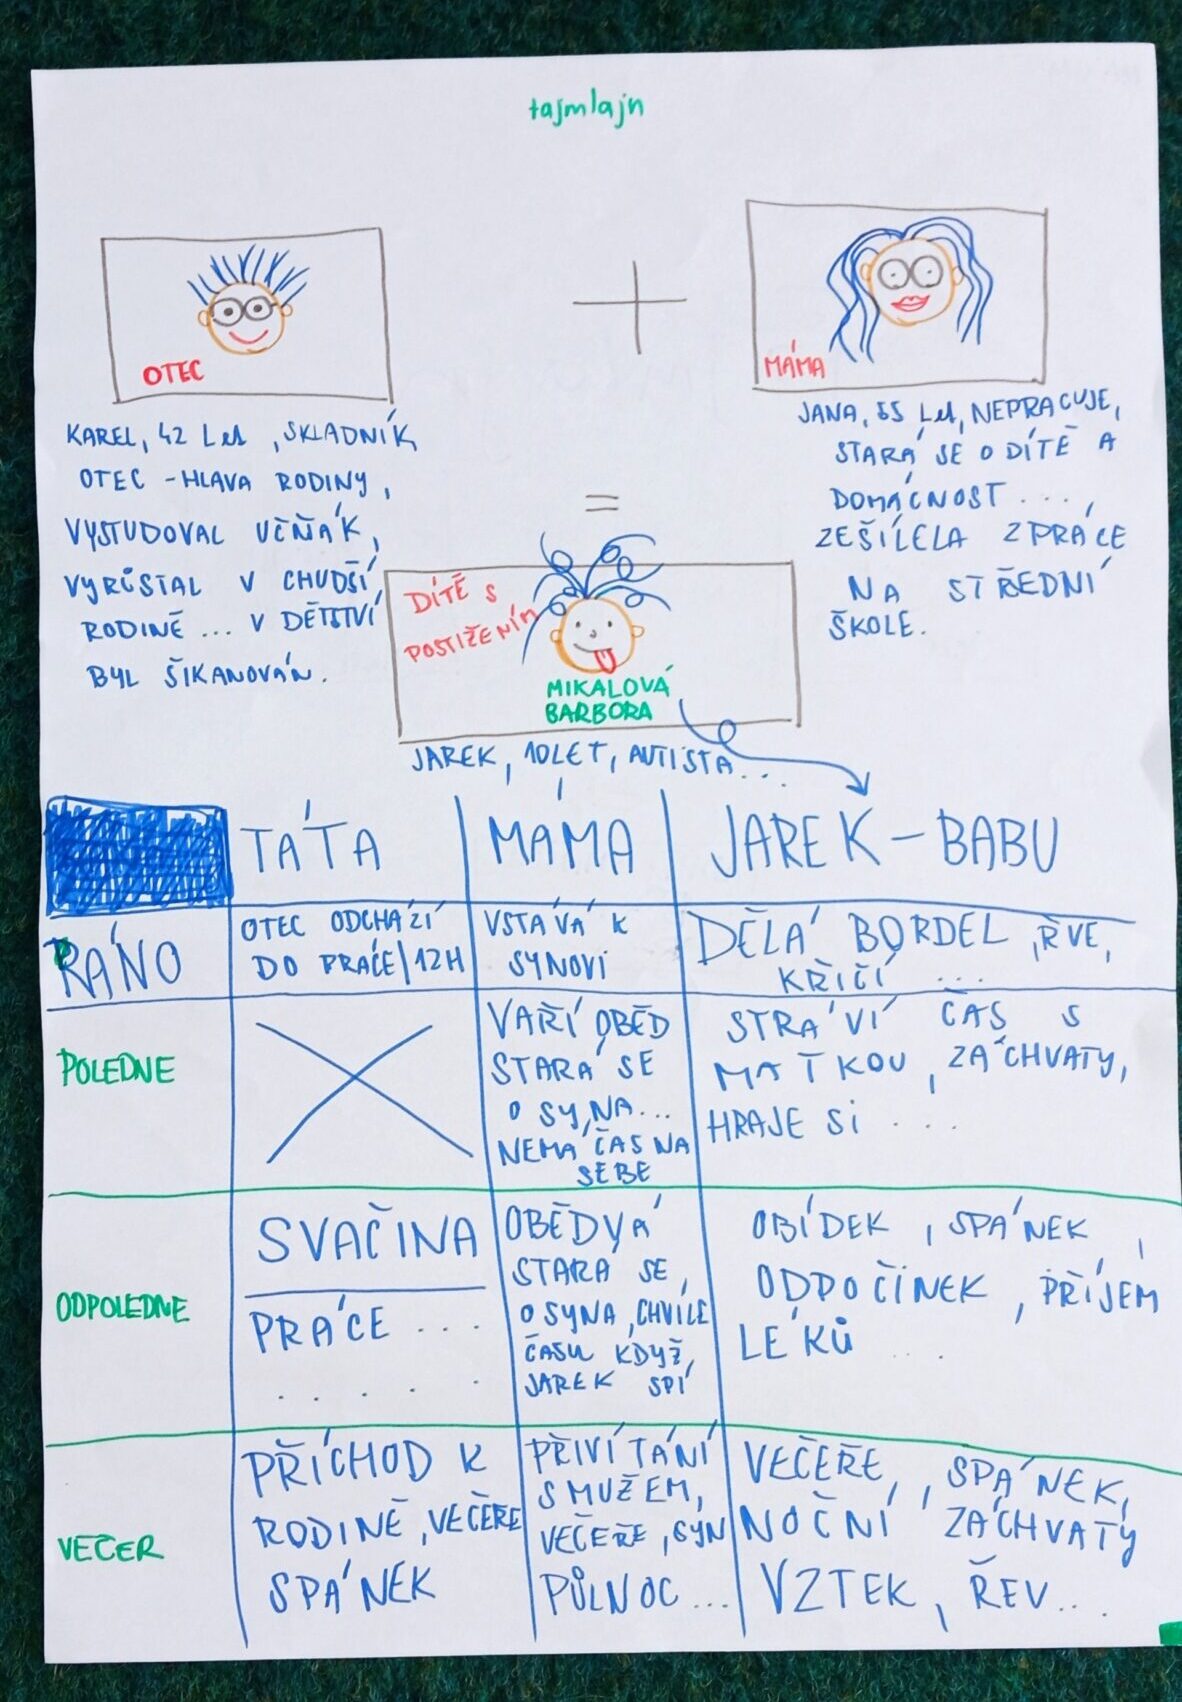 tajmlajn
OTEC
KAREL, 42 Let, SKLADNÍK,
OTEC - HLAVA RODINY,
VYSTUDOVAL UČŇÁK,
VYRŮSTAL V CHUDŠÍ
RODINĚ ... V DĚTSTVÍ
BYL ŠIKANOVÁN.
+
MÁMA
JANA, 55 Let, NEPRACUJE,
STARÁ SE O DÍTĚ A
DOMÁCNOST ....
ZEŠÍLELA Z PRÁCE
NA STŘEDNÍ
ŠKOLE.
=
DÍTĚ S
POSTIŽENÍM
MIKALOVÁ
BARBORA
JAREK, 10 LET, AUTISTA...
TÁTA
MÁMA
JAREK - BABU
RÁNO
OTEC ODCHÁZÍ
DO PRÁCE/12H
VSTÁVÁ K
SYNOVI
DĚLÁ BORDEL, ŘVE,
KŘIČÍ ...
POLEDNE
VAŘÍ OBĚD
STARÁ SE
O SYNA...
NEMÁ ČAS NA
SEBE
STRÁVÍ ČAS S
MATKOU, ZÁCHVATY,
HRAJE SI ...
ODPOLEDNE
SVAČINA
PRÁCE ...
. . . . .
OBĚDVÁ
STARÁ SE,
O SYNA, CHVÍLE
ČASU KDYŽ,
JAREK SPÍ
OBÍDEK, SPÁNEK,
ODPOČÍNEK, PŘÍJEM
LÉKŮ ...
VEČER
PŘÍCHOD K
RODINĚ, VEČEŘE
SPÁNEK
PŘIVÍTÁNÍ
S MUŽEM,
VEČEŘE, SYN
PŮLNOC ...
VEČEŘE, SPÁNEK,
NOČNÍ ZÁCHVATY
VZTEK, ŘEV...